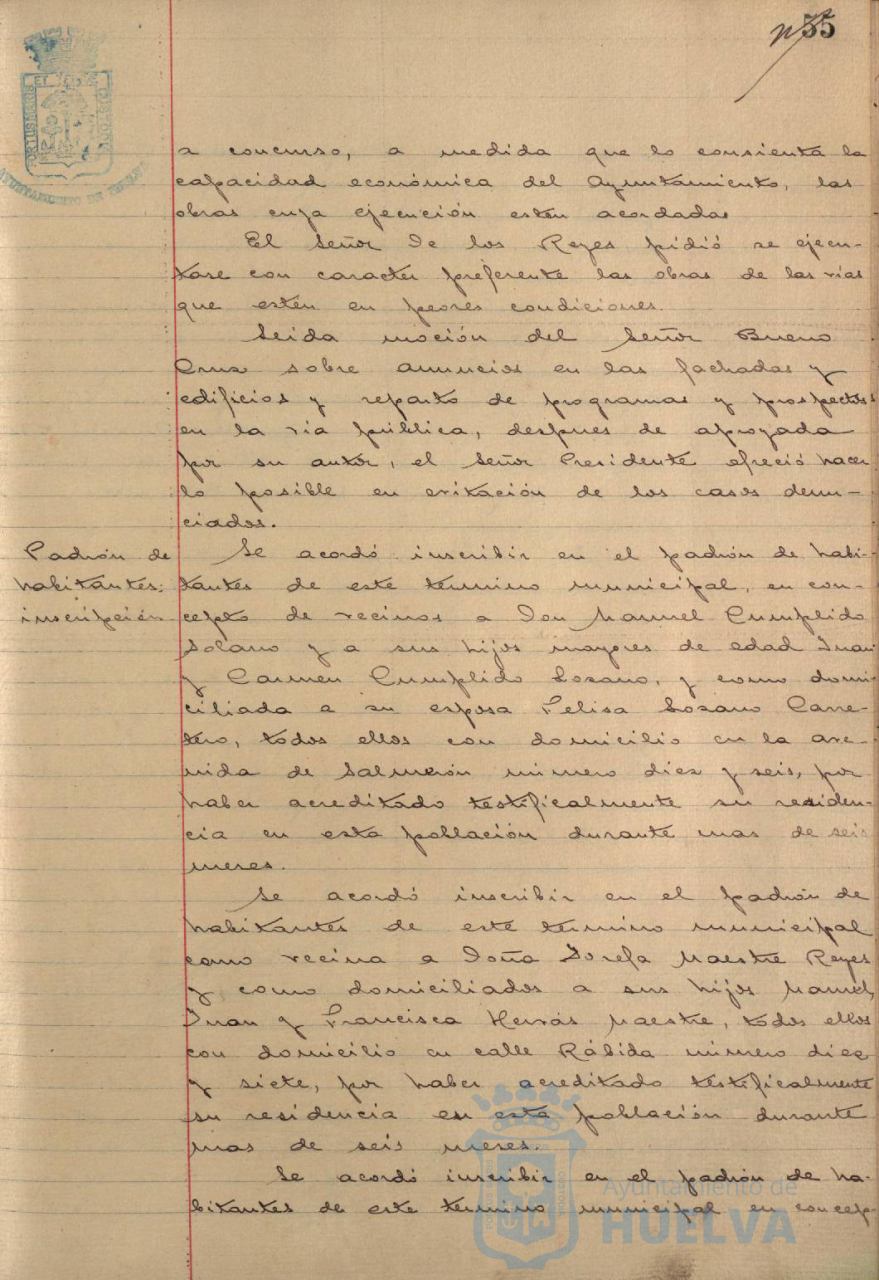 35
a concurso, a medida que lo consienta la
capacidad económica del Ayuntamiento, las
obras cuya ejecución esten acordadas
El Señor De los Reyes pidió se ejecu-
tase con caracter preferente las obras de las vías
que estén en peores condiciones.
Leida moción del Señor Bueno
Cruz sobre anuncios en las fachadas y
edificios y reparto de programas y prospectos
en la vía pública, despues de apoyada
por su autor, el Señor Presidente ofreció hacer
lo posible en evitación de los casos denun-
ciados.
Padrón de
habitantes:
inscripción
Se acordó inscribir en el padrón de habi-
tantes de este término municipal, en con-
cepto de vecinos a Don Manuel Cumplido
Solano y a sus hijos mayores de edad Juan
y Carmen Cumplido Lozano, y como domi-
ciliada a su esposa Felisa Lozano Carre-
tero, todos ellos con domicilio en la ave-
nida de Salmerón número diez y seis, por
haber acreditado testificalmente su residen-
cia en esta población durante mas de seis
meses.
Se acordó inscribir en el padrón de
habitantes de este termino municipal
como vecina a Doña Josefa Maestre Reyes
y como domiciliados a sus hijos Manuel,
Juan y Francisca Hervás Maestre, todos ellos
con domicilio en calle Rábida número diez
y siete, por haber acreditado testificalmente
su residencia en esta población durante
mas de seis meses.
Se acordó inscribir en el padrón de ha-
bitantes de este término municipal en concep-
AYUNTAMIENTO DE HUELVA
Ayuntamiento de
HUELVA